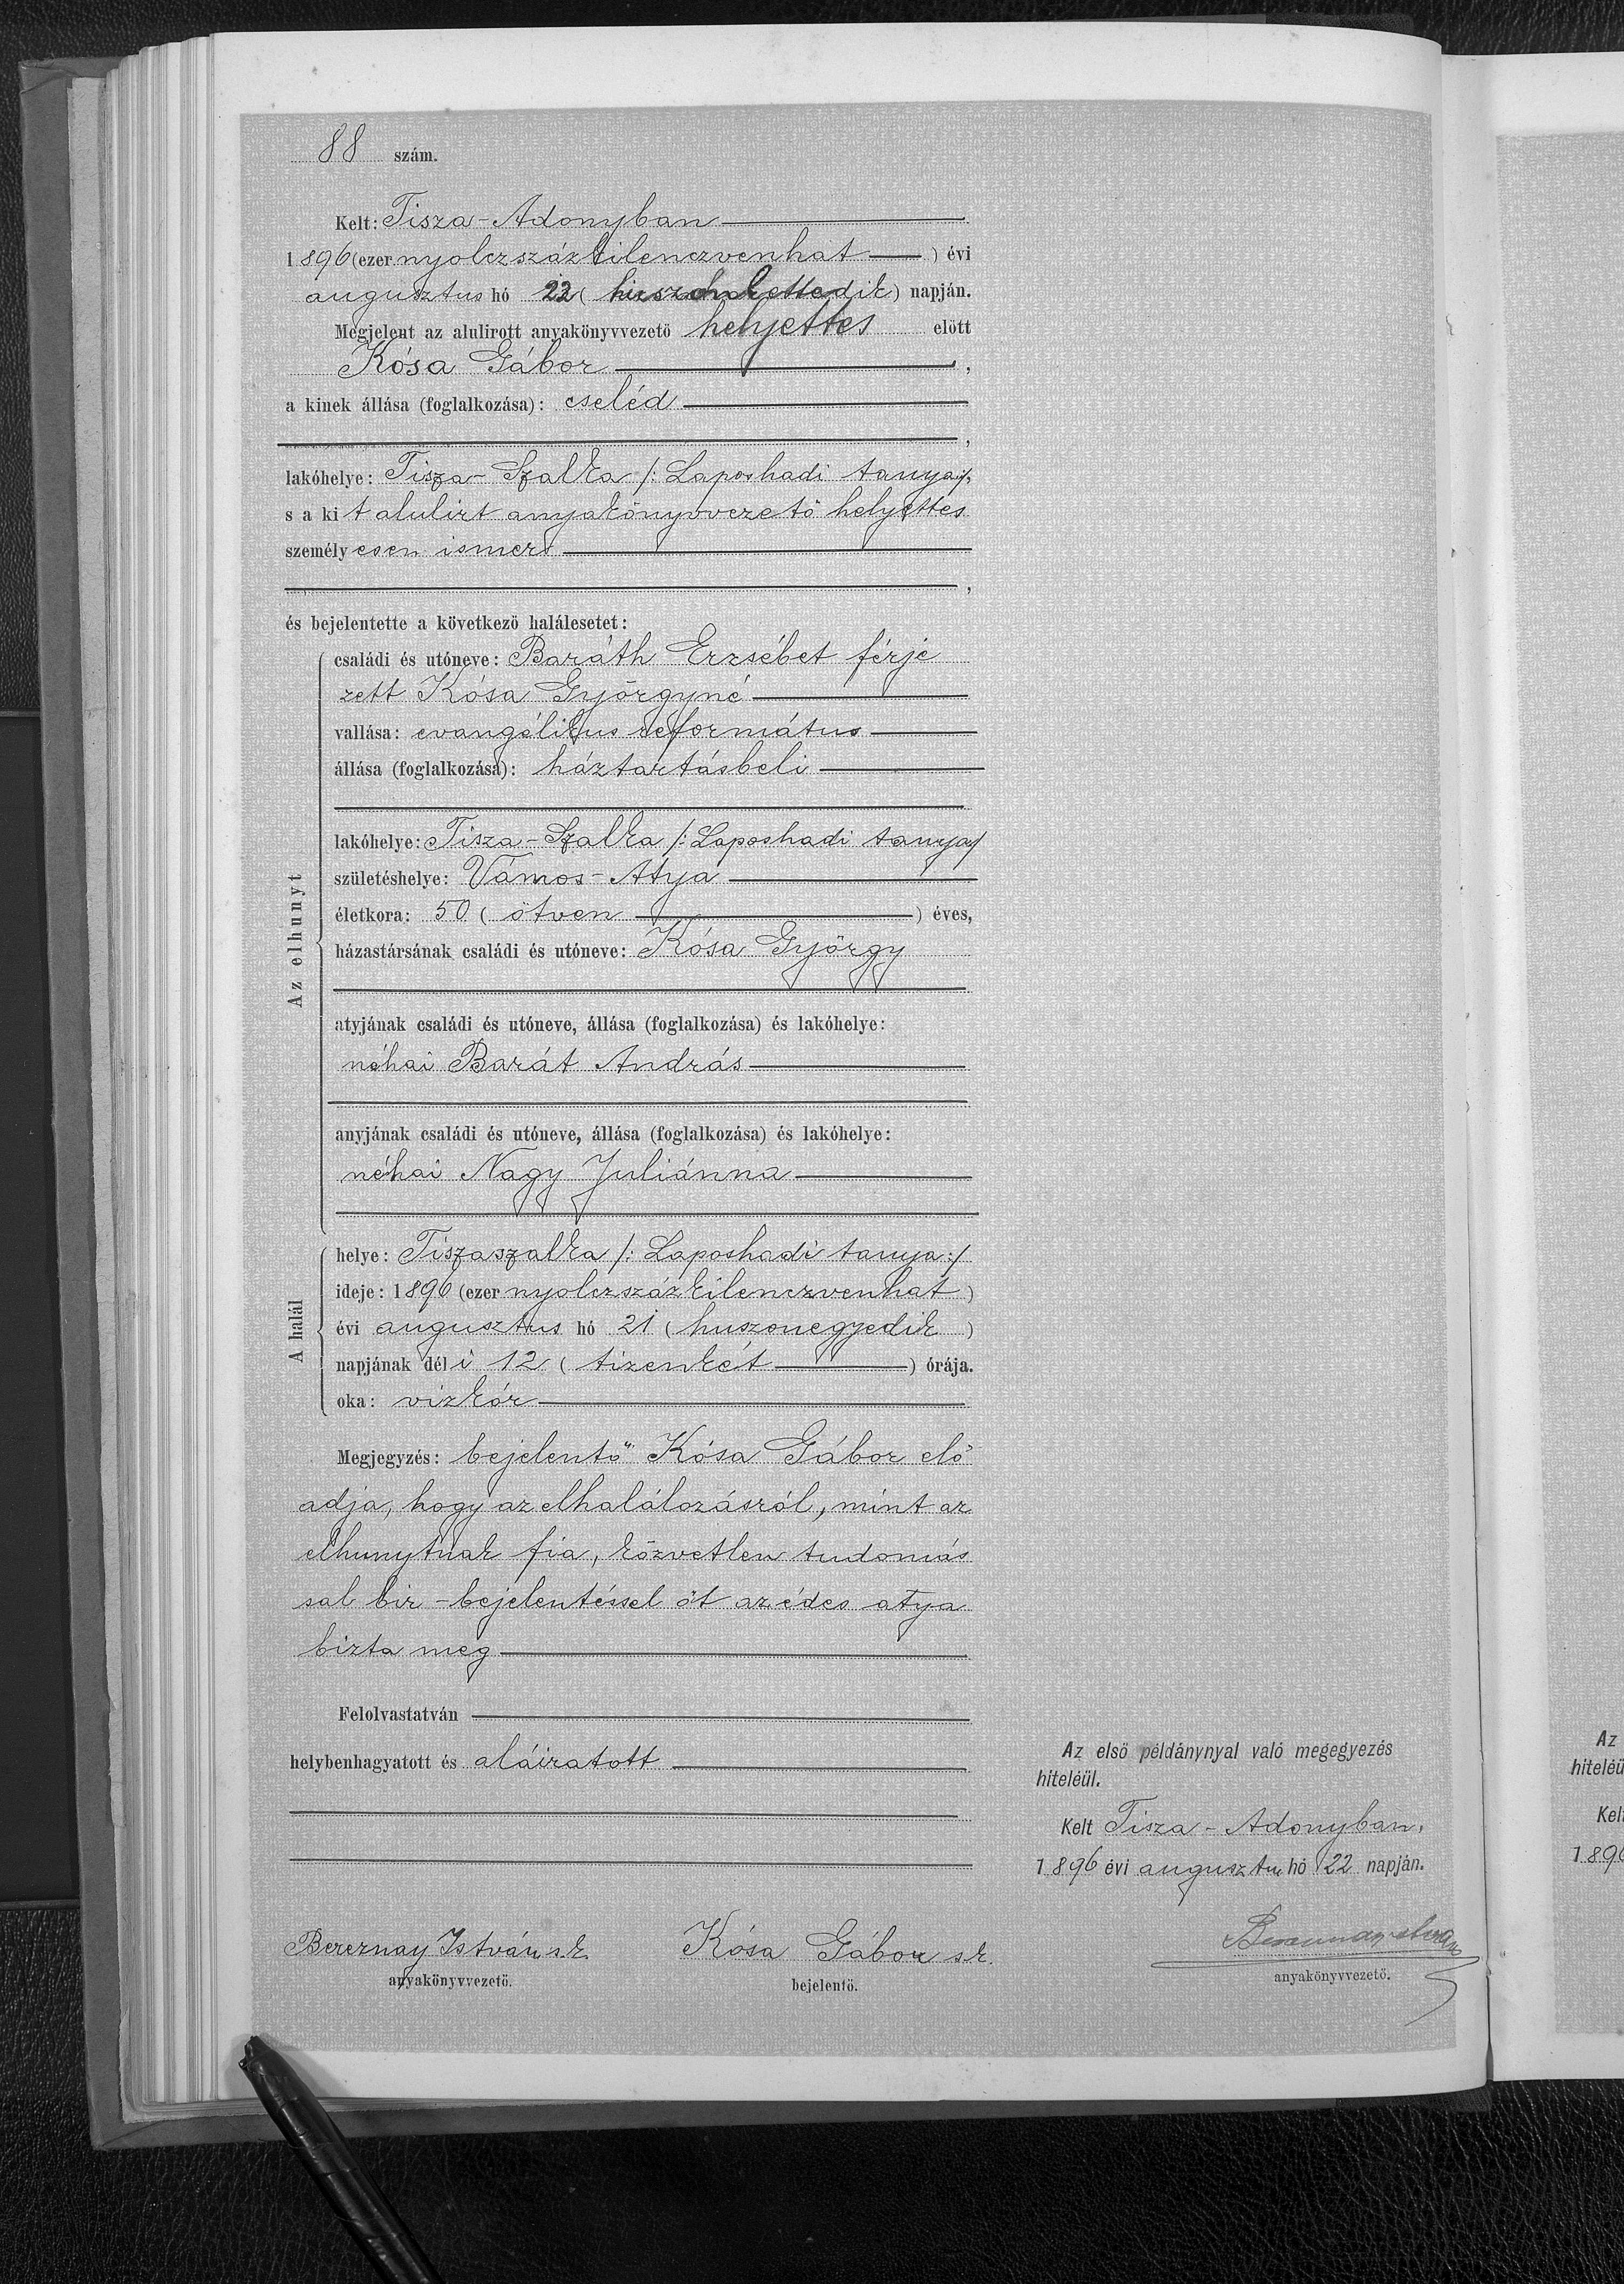 88 szám.
Kelt: Tisza-Adonyban
1896 (ezer nyolczszázkilenczvenhat) évi
augusztus hó 22 (huszonkettedik) napján.
Megjelent az alulirott anyakönyvvezető helyettes előtt
Kósa Gábor,
a kinek állása (foglalkozása): cseléd
,
lakóhelye: Tisza-Szalka /: Laposhadi tanya:/,
s a kit alulirt anyakönyvvezető helyettes
személyesen ismer
,
és bejelentette a következő halálesetet:
Az elhunyt
családi és utóneve: Baráth Erzsébet férje
zett Kósa Györgyné
vallása: evangélikus református
állása (foglalkozása): háztartásbeli
lakóhelye: Tisza-Szalka /: Laposhadi tanya/
születéshelye: Vámos-Atya
életkora: 50 (ötven) éves,
házastársának családi és utóneve: Kósa György
atyjának családi és utóneve, állása (foglalkozása) és lakóhelye:
néhai Barát András
anyjának családi és utóneve, állása (foglalkozása) és lakóhelye:
néhai Nagy Juliánna
A halál
helye: Tiszaszalka /: Laposhadi tanya:/
ideje: 1896 (ezer nyolczszázkilenczvenhat)
évi augusztus hó 21 (huszonegyedik)
napjának déli 12 (tizenkét) órája.
oka: vizkór
Megjegyzés: bejelentő Kósa Gábor elő
adja, hogy az elhalálozásról, mint az
elhunytnak fia, közvetlen tudomás
sal bir - bejelentéssel őt az édes atya
bizta meg
Felolvastatván
helybenhagyatott és aláiratott
Az első példánynyal való megegyezés
hiteléül.
Kelt Tisza-Adonyban,
1896 évi augusztus hó 22 napján.
Berernay István s.k.
anyakönyvvezető.
Kósa Gábor s.k.
bejelentő.
anyakönyvvezető.
Az
hiteléü
Kel
1896